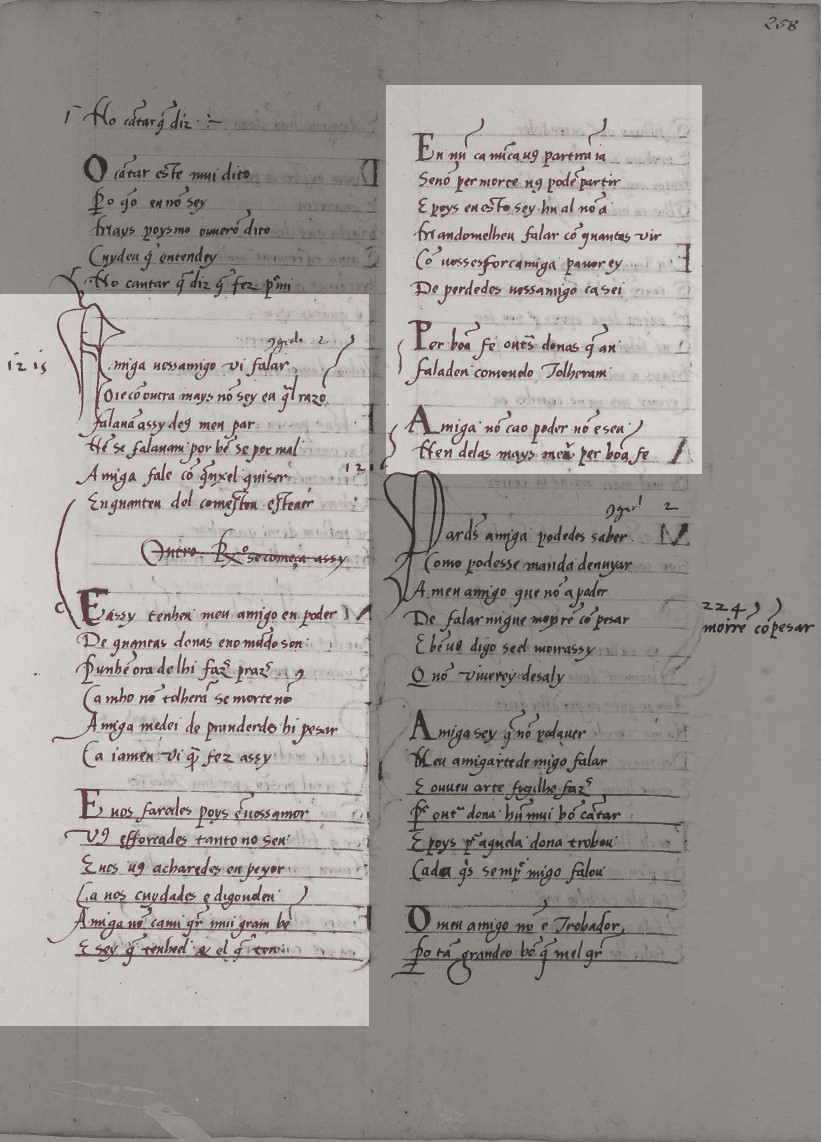 258
1 No cãtar q̃ diz :~
O cãtar este mui dito
Po q̃o eu nõ sey
Mays poysmo ouuerõ dito
Cuydey q̃ entendey
No cantar q̃ diz q̃ fez p̃ mi
1215
Amiga uossamigo vi falar
Oie cõ outra mays nõ sey en q̃l razõ
falauã assy de9 men par
Nẽ se falauam por bẽ se por mal
Amiga fale cõ q̃nxel quiser
Enquanteu del comestou esteuer
Outro Rx̃o se começa assy
E assy tenheu meu amigo en poder
De quantas donas eno mũdo son
Punhẽ ora de lhi faz̃ praz̃
Ca mho nõ tolherã se morte nõ
Amiga medei de pranderdes hi pesar
Ca iameu vi q̃ fez assy
E uos faredes poys ẽ uossamor
V9 esforcades tanto no seu
E uos u9 acharedes en peyor
Ca uos cuydades e digouoleu
Amiga nõ ca mi q̃r mui gram bẽ
E sey q̃ tenheu e el q̃ ten
En mĩ ca nũca u9 partira ia
Senõ per morte n9 podẽ partir
E poys eu esto sey hu al nõ a
Mandomelheu falar cõ quantas vir
Cõ uossesforcamiga pauor ey
De perdedes uossamigo ca sei
Per boa fe outs̃ donas q̃ an
faladen comouolo Tolheram
Amiga nõ cao poder nõ e seu
Nen delas mays meu per boa fe
1216
Par ds̃ amiga podedes saber
Como podesse manda denuyar
A meu amigo que nõ a poder
De falar migue moyrẽ cõ pesar
E bẽ u9 digo se el morr assy
Q̃ nõ viuerey desaly
224
moirrẽ cõ pesar
Amiga sey q̃ nõ pod auer
Meu amigarte de migo falar
E ouueu arte figilhe faz̃
P̃ out̃ dona hũ mui bõ cãtar
E poys p̃ aquela dona trobou
Cada q̃s semp̃ migo falou
O meu amigo nõ e Trobador
Po tã grandeo bẽ q̃ mel q̃r